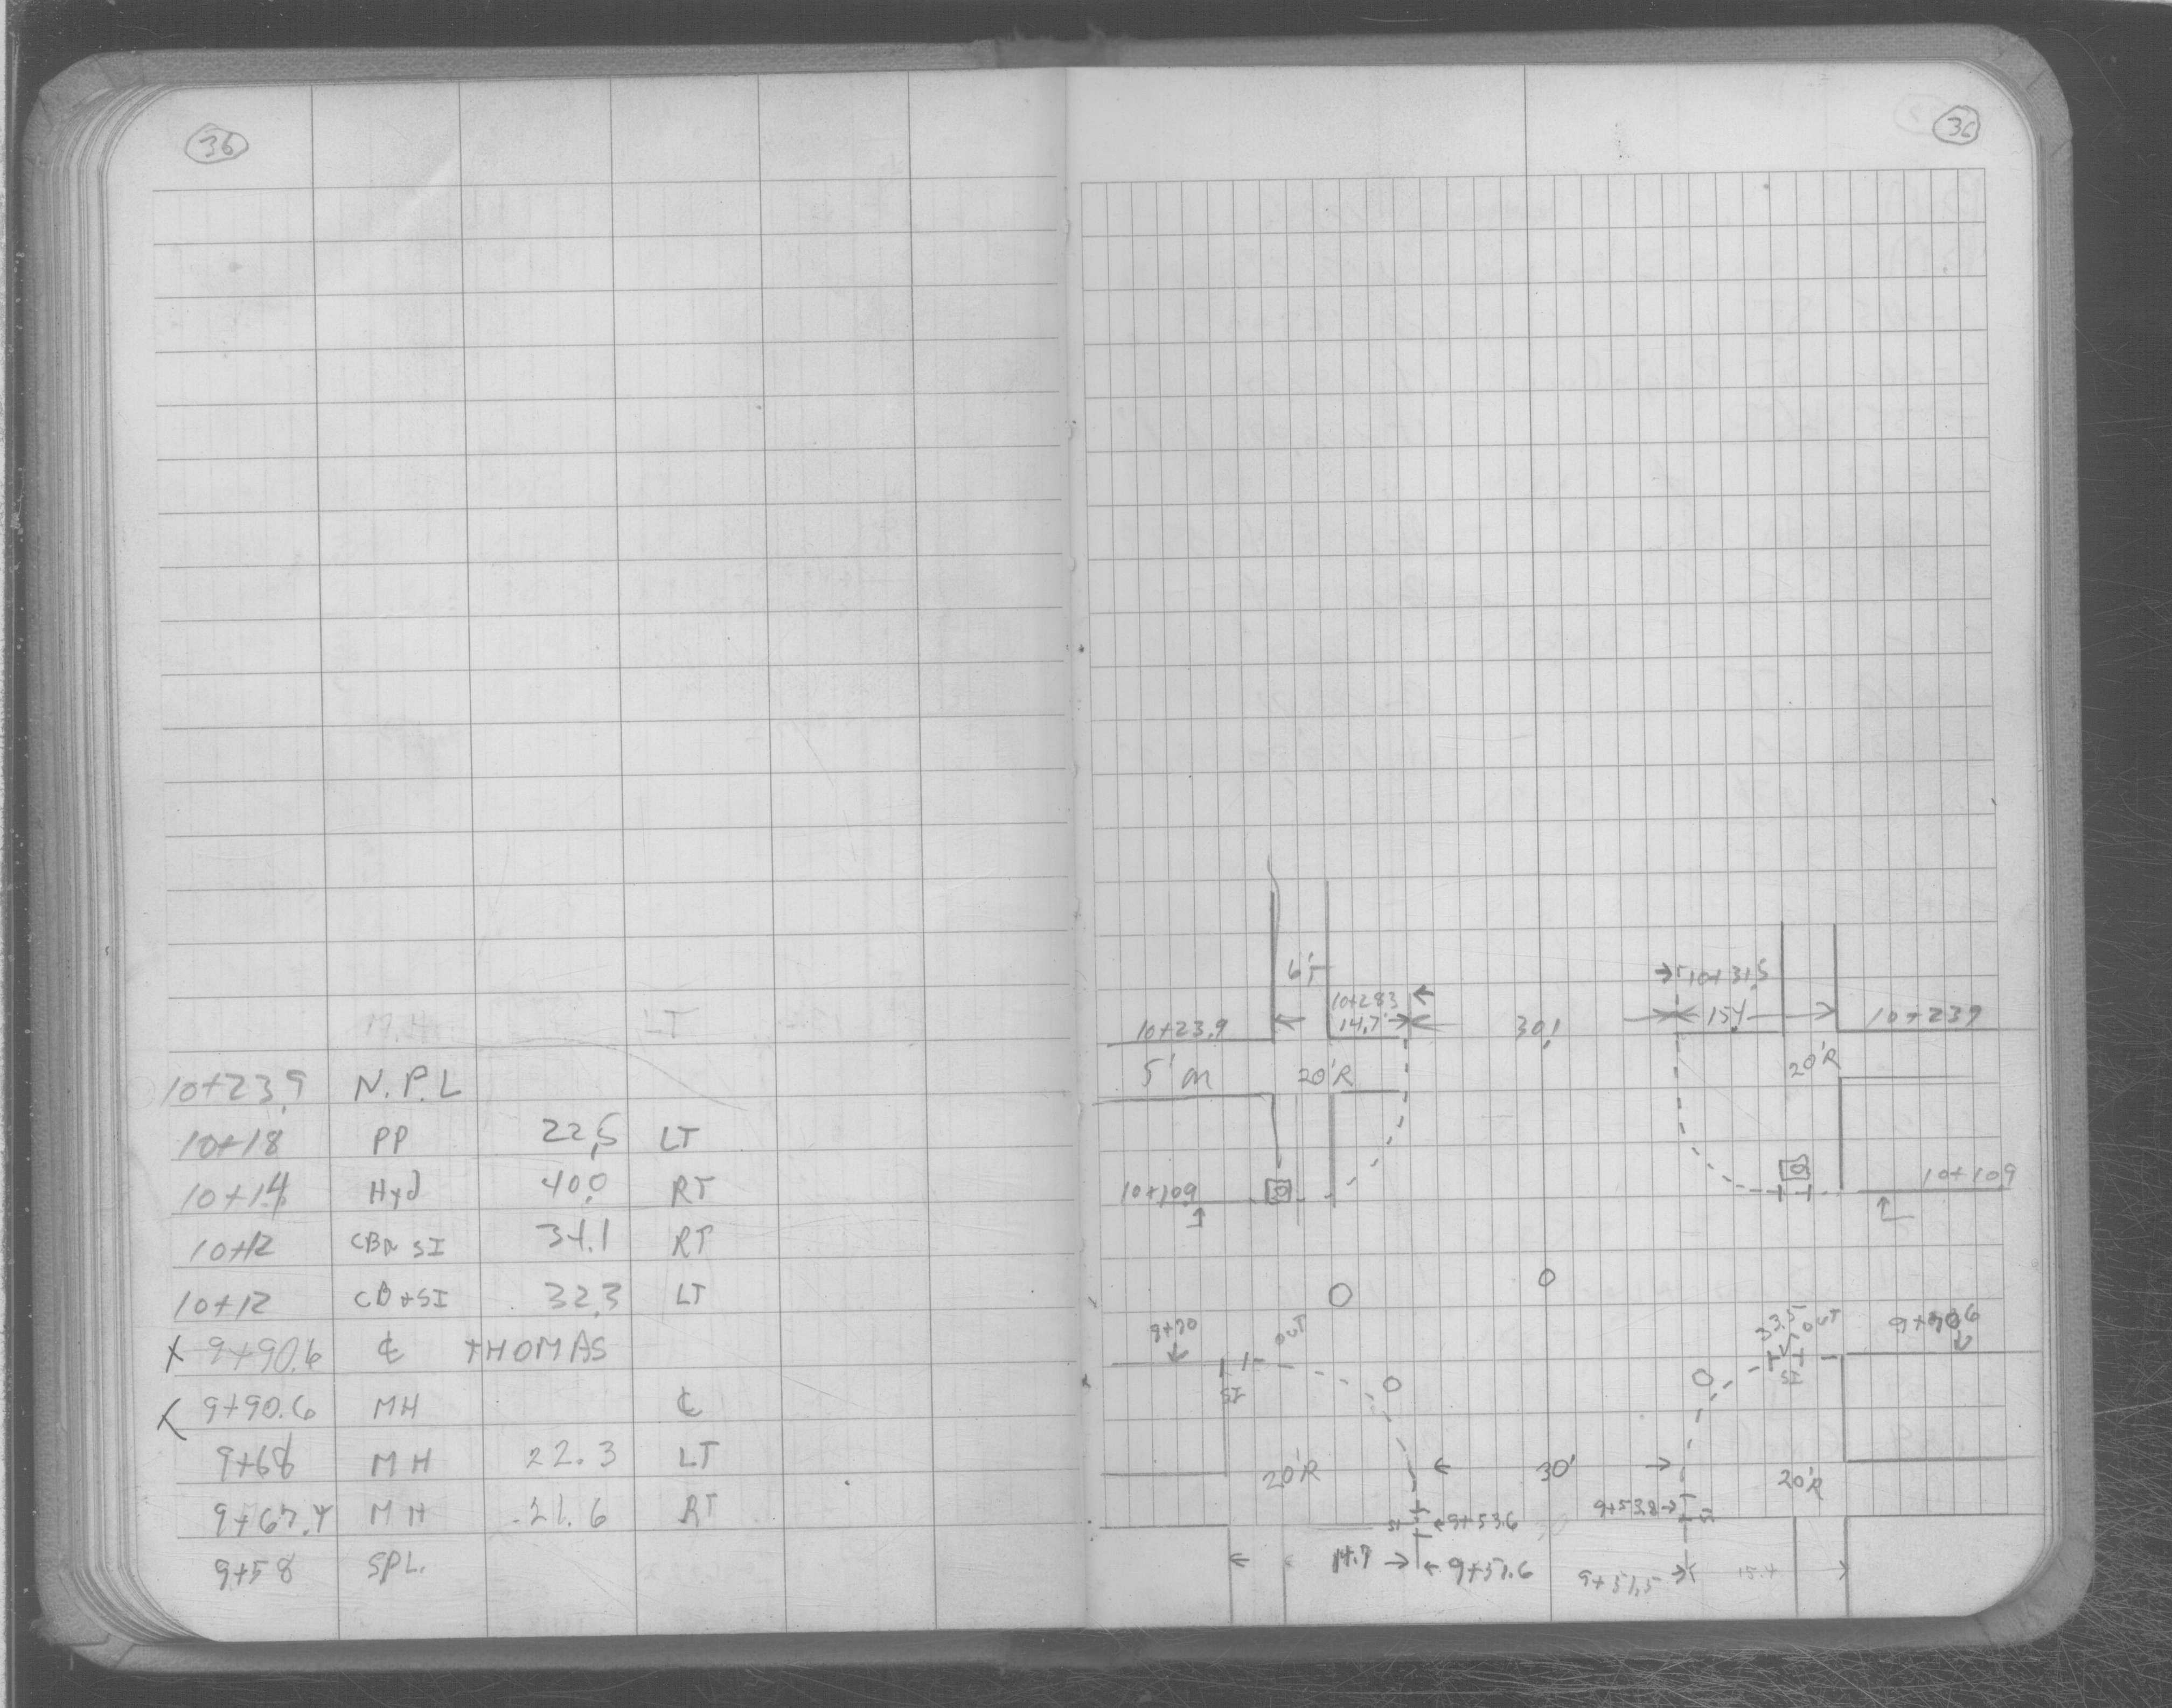 36
M.H. LT
10+23.9 N.P.L
10+18 PP 22.5 LT
10+14 Hyd 40.0 RT
10+12 CB&SI 34.1 RT
10+12 CB+SI 32.3 LT
X 9+90.6 ℄ THOMAS
X 9+90.6 MH ℄
9+68 MH 22.3 LT
9+67.4 MH 21.6 RT
9+58 SPL.
36
6'T
10+31.5
10+28.3
10+23.9 14.7' 30' 15.4 10+23.9
5' 20'R 20'R
10+10.9 10+10.9
9+70 OUT 33.5 OUT
SI SI
20'R 30' 20'R
SI 9+53.6 9+53.8 SI
14.7 9+51.6 9+51.5 15.4